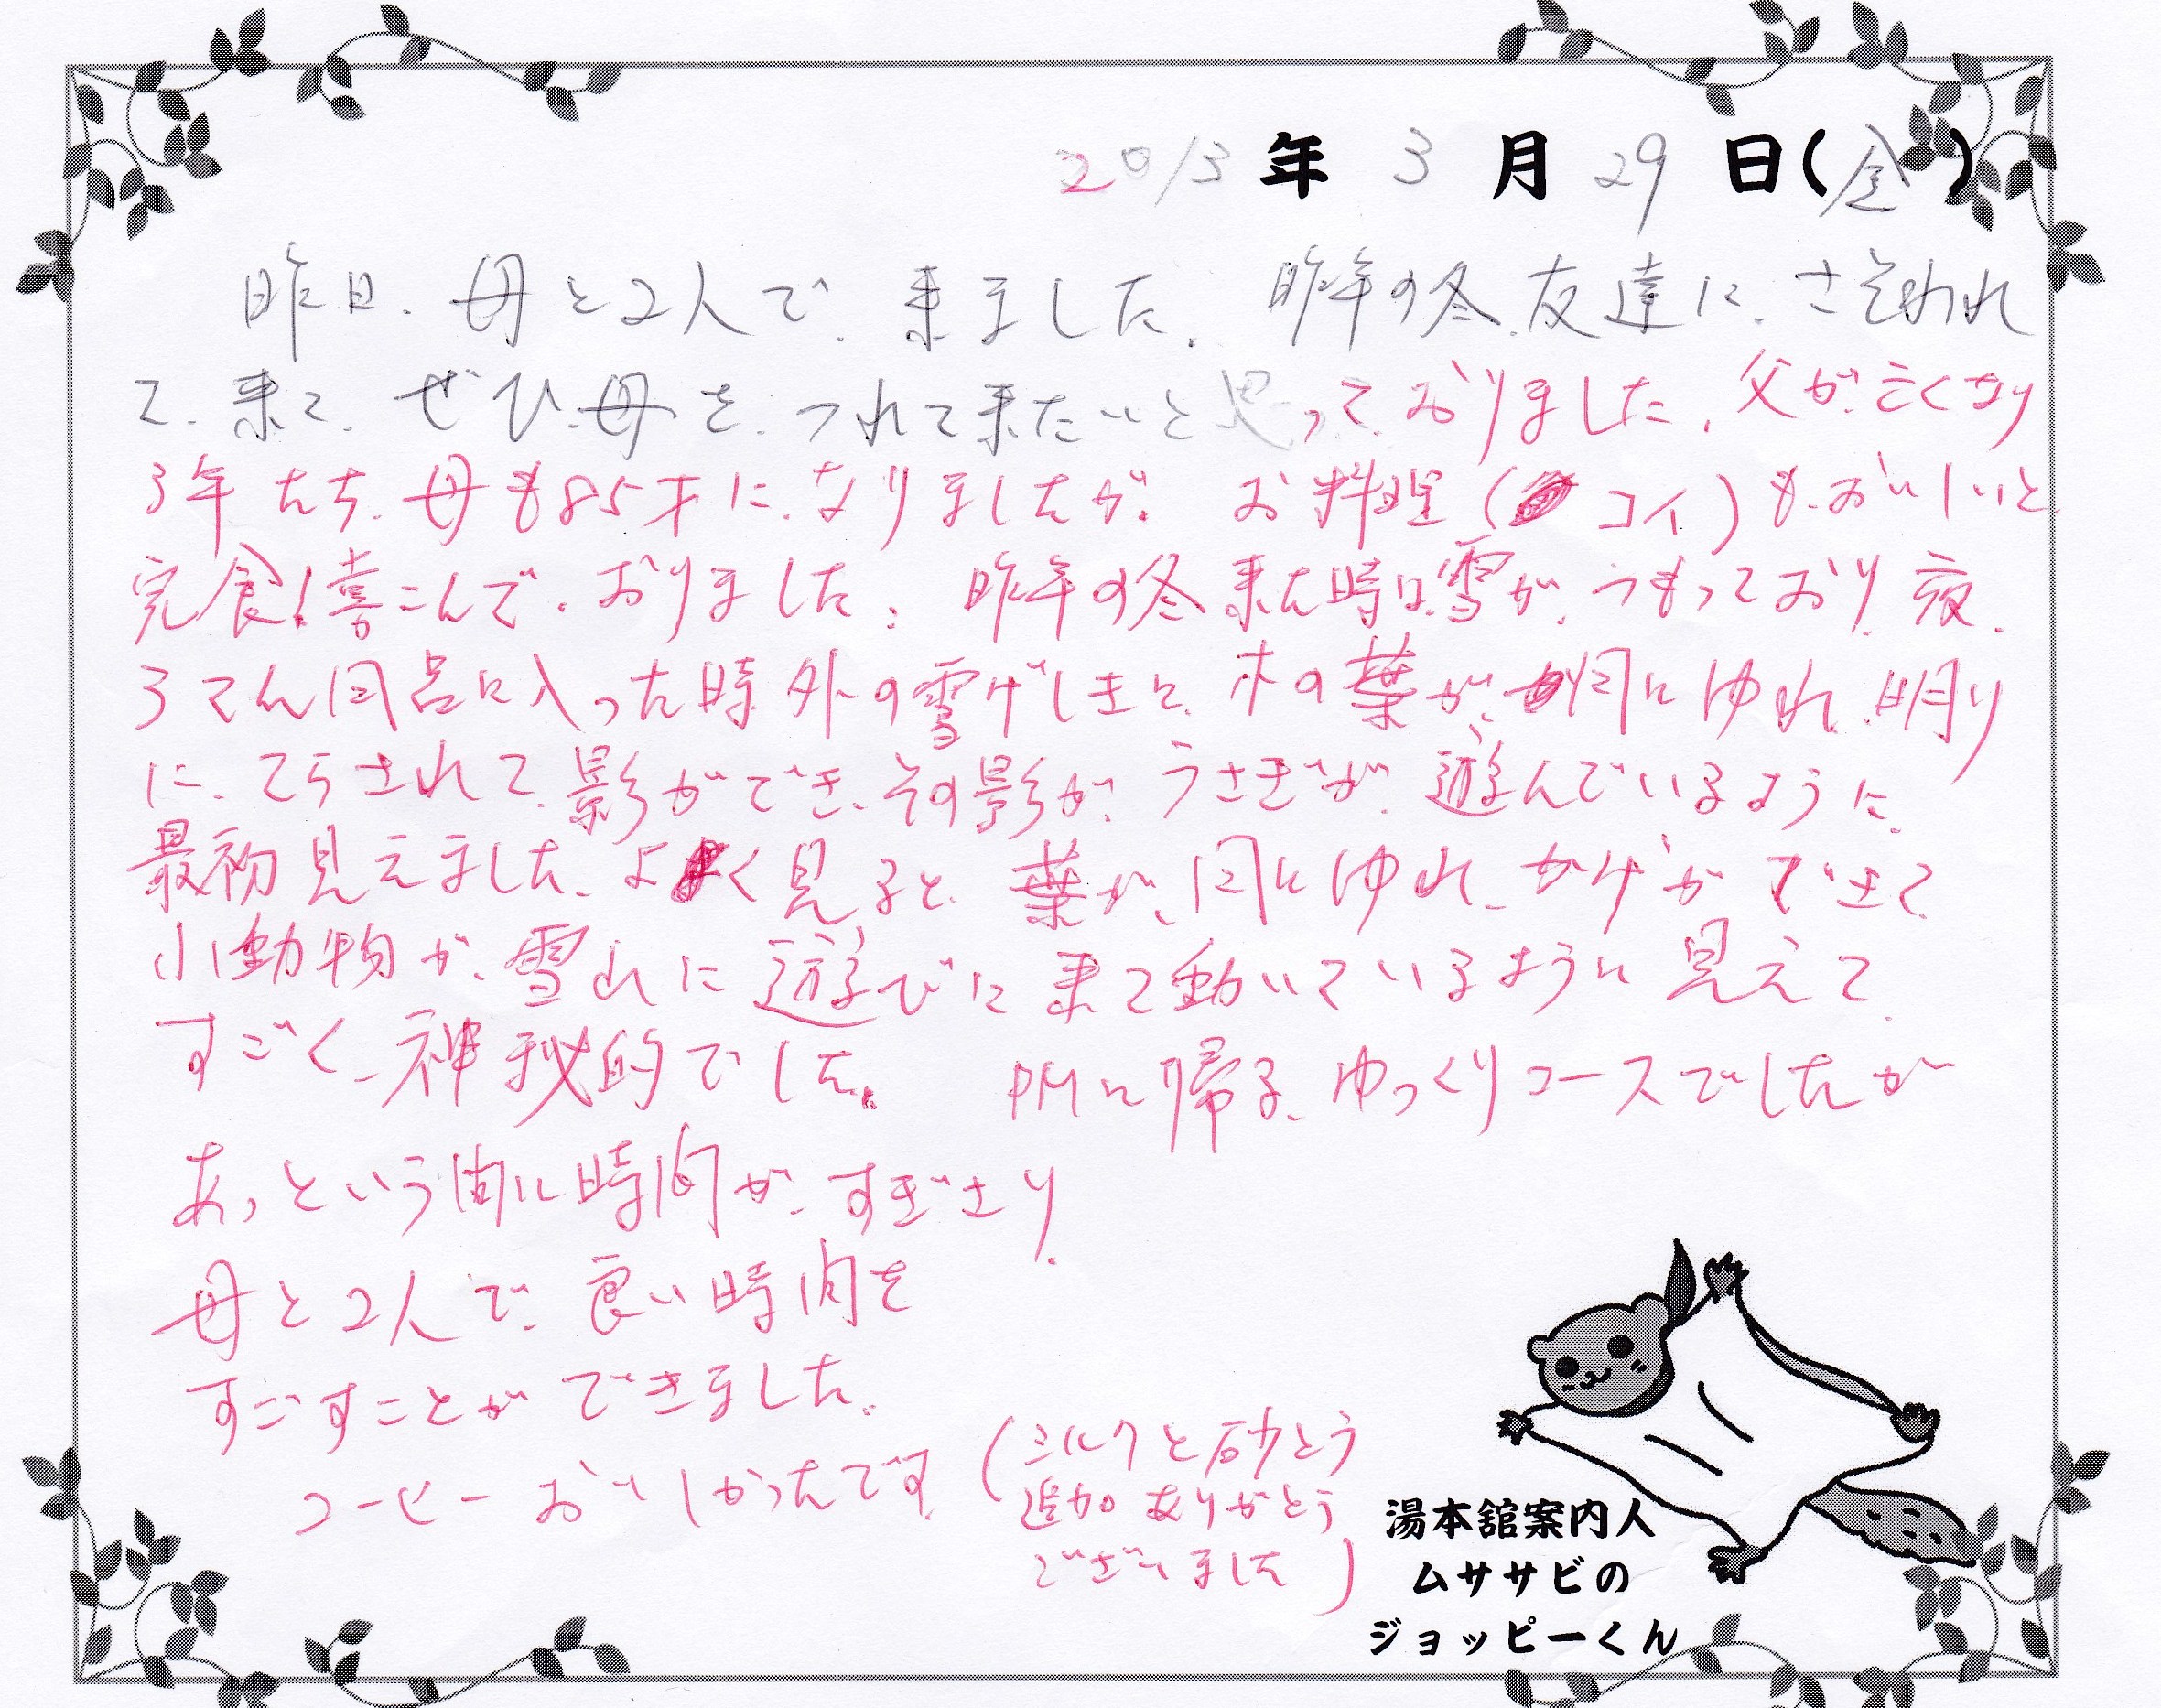 2013年 3月 29日(金)
昨日、母と2人で、来ました。昨年の冬、友達に、さそわれ
て、来て、ぜひ、母を、つれて来たいと思って、おりました。父が、亡くなり
3年たち、母も85才に、なりましたが、お料理(コイ)も、おいしいと、
完食!喜こんで、おりました。昨年の冬来た時は、雪が、つもっており、夜、
ろてん風呂に入った時外の雪げしきに、木の葉が、風にゆれ、明り
に、てらされて、影ができ、その影が、うさぎが、遊んでいるように、
最初見えました。よく見ると、葉が、風にゆれ、かげができて、
小動物が、雪山に遊びに来て動いているように見えて、
すごく、神秘的でした。 PMに帰る、ゆっくりコースでしたが
あっという間に時間が、すぎさり、
母と2人で、良い時間を
すごすことができました。
コーヒーおいしかったです。(ミルクと砂とう
追加ありがとう
ございました)
湯本舘案内人
ムササビの
ジョッピーくん